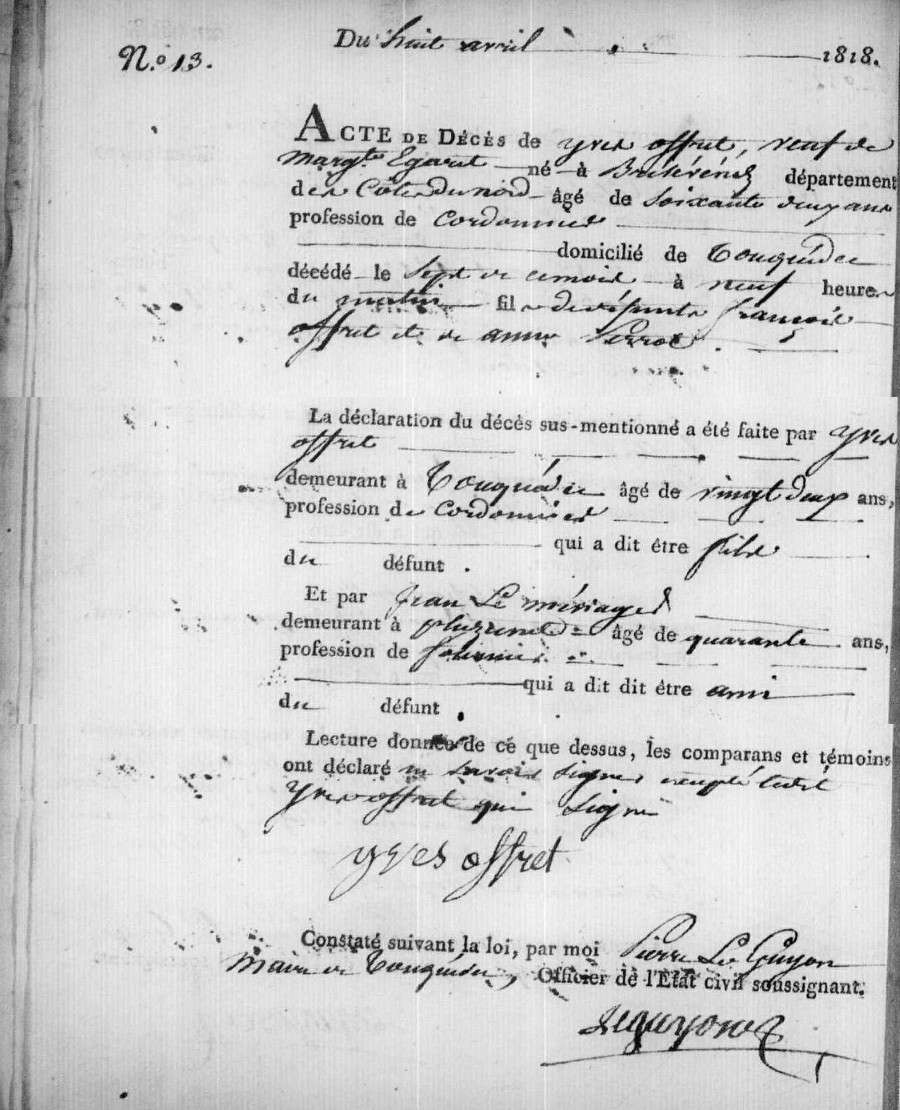 Du huit avril 1818.
N.o 13.
ACTE DE DÉCÈS de yves offret, veuf de
Margte Egaret né à département
des Côtes du nord âgé de soixante deux ans
profession de Cordonnier
domicilié de Tonquédec
décédé le sept de ce mois à neuf heures
du matin fils de défunts françois
offret et de anne Perrot.
La déclaration du décès sus-mentionné a été faite par yves
offret
demeurant à Tonquédec âgé de vingt deux ans,
profession de Cordonnier
qui a dit être fils
du défunt.
Et par Jean Le
demeurant à pluzunet âgé de quarante ans,
profession de
qui a dit dit être ami
du défunt.
Lecture donnée de ce que dessus, les comparans et témoins
ont déclaré ne savoir signer excepté ledit
yves offret qui signe
yves offret
Constaté suivant la loi, par moi Pierre Le Guyon
Maire de Tonquédec, Officier de l'État civil soussignant.
Leguyon